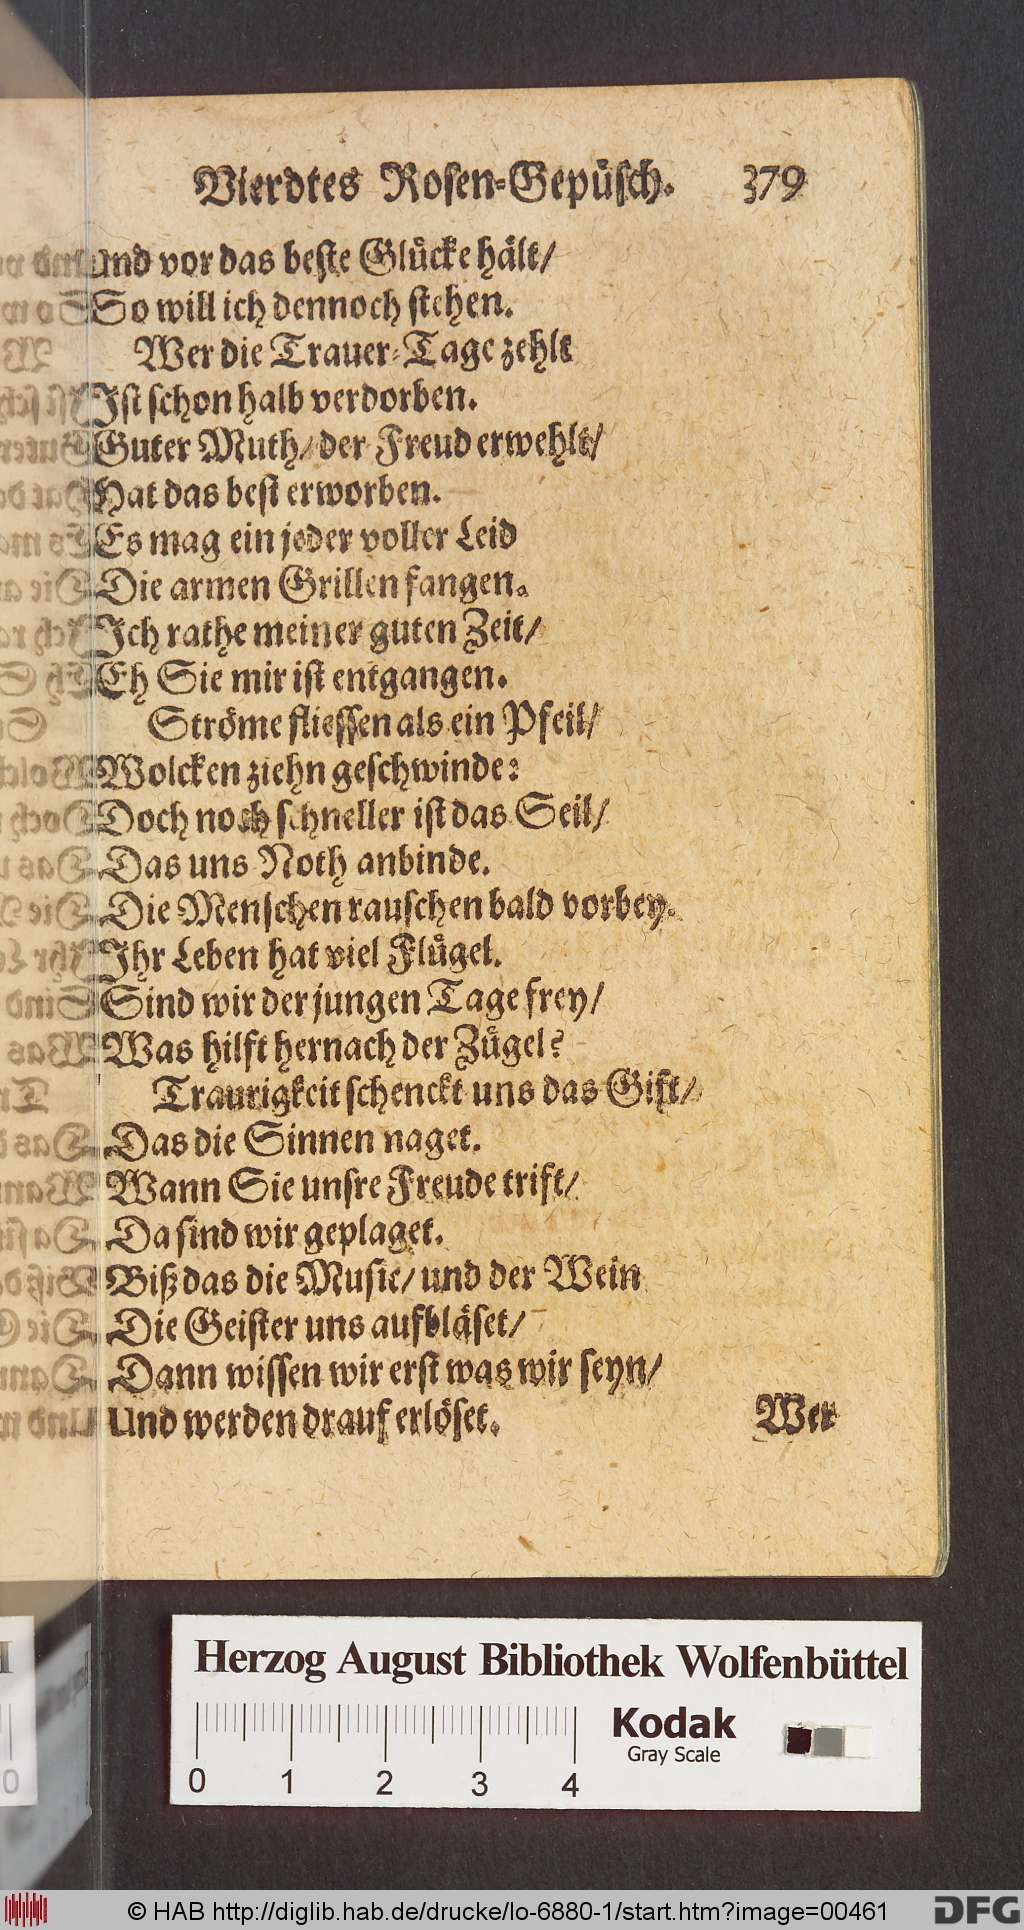 Vierdtes Rosen-Gepüsch. 379
Und vor das beste Glücke hält/
So will ich dennoch stehen.
Wer die Trauer-Tage zehlt
Ist schon halb verdorben.
Guter Muth/ der Freud erwehlt/
Hat das best erworben.
Es mag ein jeder voller Leid
Die armen Grillen fangen.
Ich rathe meiner guten Zeit/
Eh Sie mir ist entgangen.
Ströme fliessen als ein Pfeil/
Wolcken ziehn geschwinde:
Doch noch schneller ist das Seil/
Das uns Noth anbinde.
Die Menschen rauschen bald vorbey.
Ihr Leben hat viel Flügel.
Sind wir der jungen Tage frey/
Was hilft hernach der Zügel?
Traurigkeit schenckt uns das Gift/
Das die Sinnen naget.
Wann Sie unsre Freude trift/
Da sind wir geplaget.
Biß das die Music/ und der Wein
Die Geister uns aufbläset/
Dann wissen wir erst was wir seyn/
Und werden drauf erlöset.
Wer
Herzog August Bibliothek Wolfenbüttel
Kodak
Gray Scale
0 1 2 3 4
© HAB http://diglib.hab.de/drucke/lo-6880-1/start.htm?image=00461
DFG